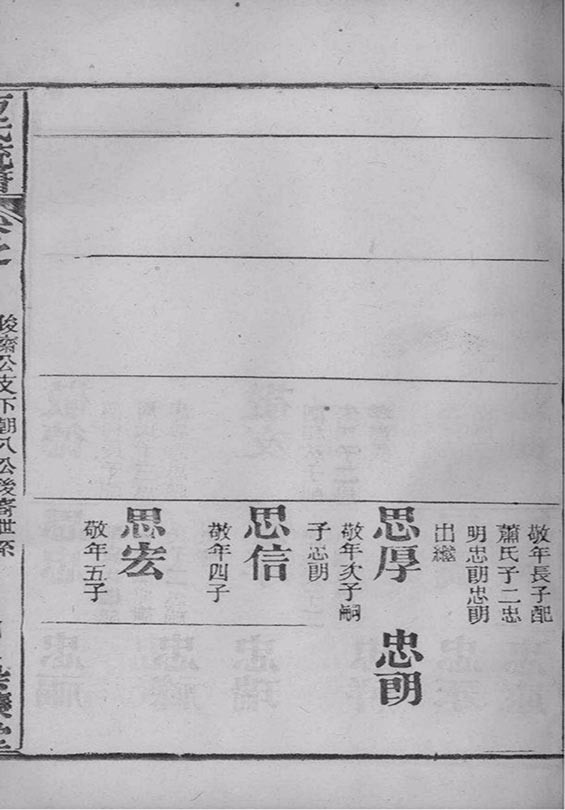 敬年長子配
蕭氏子二忠
明忠朗忠朗
出繼
思厚
忠朗
敬年次子嗣
子忠朗
思信
敬年四子
思宏
敬年五子
氏統譜
卷之
齋公支下朝八公後寄世系